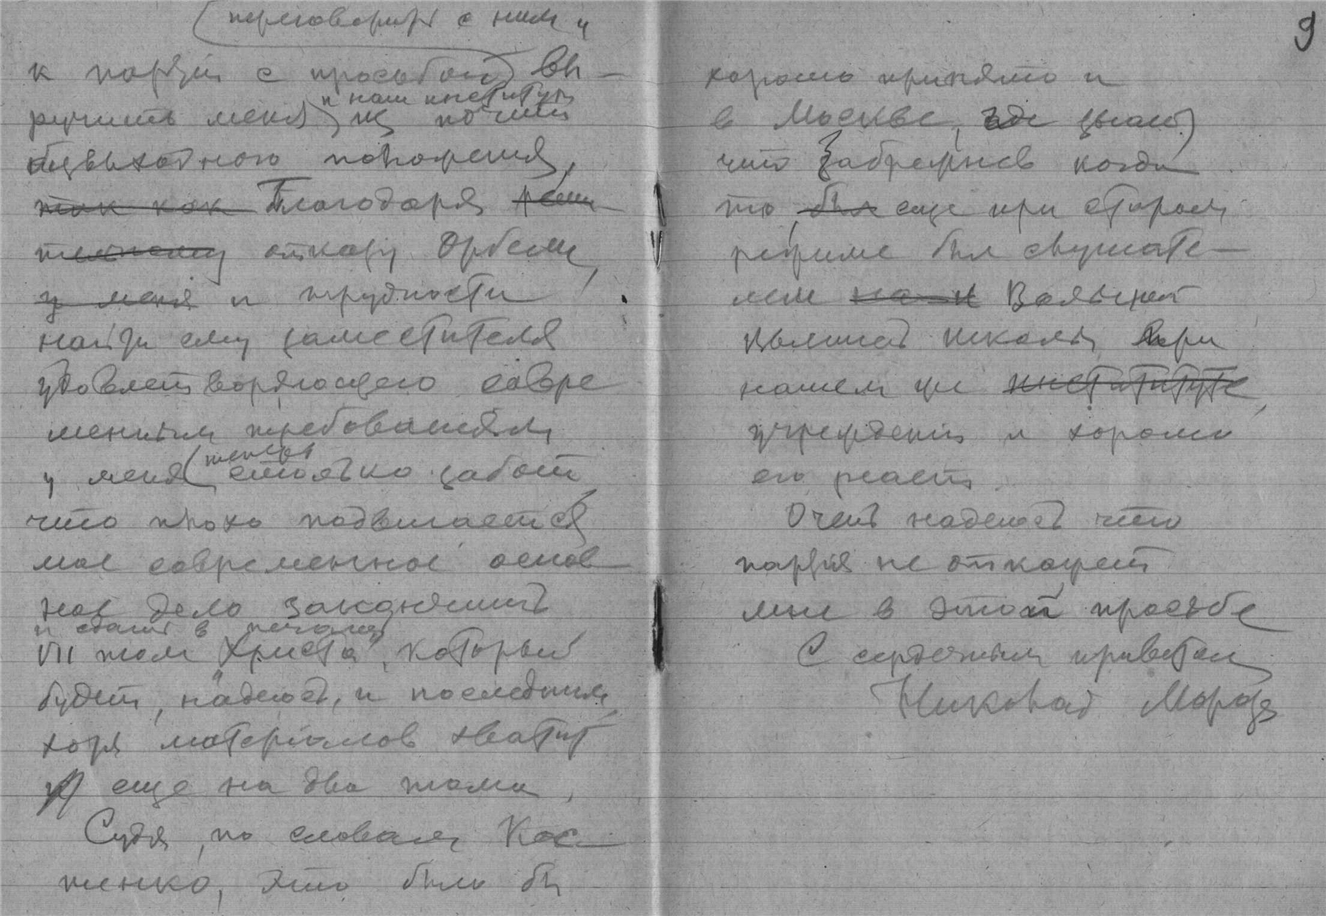 переговорить с ним и
к партии с просьбой вы-
ручить меня и наш институт из почти
безвыходного положения,
так как Благодаря реши
тельному отказу Орбели,
у меня и трудности
найти ему заместителя
удовлетворяющего совре
менным требованиям
у меня теперь столько забот
что плохо подвигается
мое современное основ
ное дело закончить
и сдать в печать
VII том "Христа", который
будет, надеюсь, и последним,
хотя материалов хватит
еще на два тома.
Судя, по словам Кос
тенко, это было бы
9
хорошо принято и
в Москве, где знают
что Забрежнев когда
то был еще при старом
режиме был слушате-
лем Вольной
высшей школы при
нашем же институте
учреждении и хорошо
его знает.
Очень надеюсь что
партия не откажет
мне в этой просьбе
С сердечным приветом
Николай Морозов